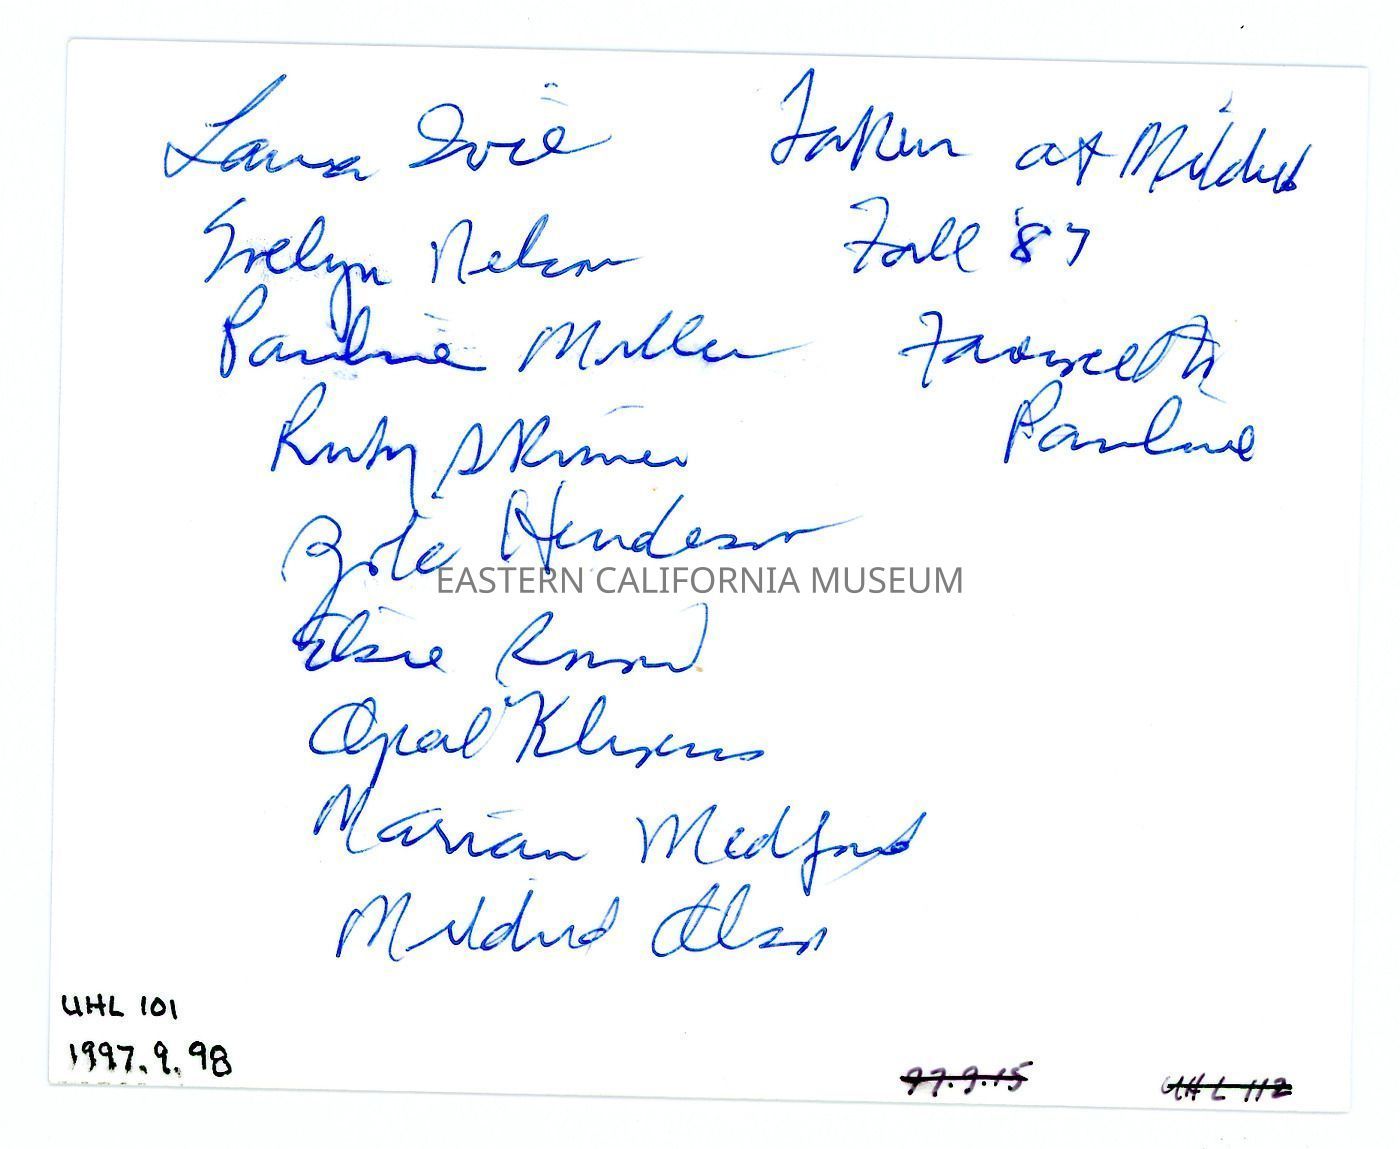 Laura Ivie
Evelyn Nelson
Pauline Miller
Ruby Skinner
Henderson
Elsie
Opal
Marian Medford
Mildred Olson
Taken at Mildred
Fall '87
Pauline
EASTERN CALIFORNIA MUSEUM
UHL 101
1997.9.98
97.9.15
UHL 112